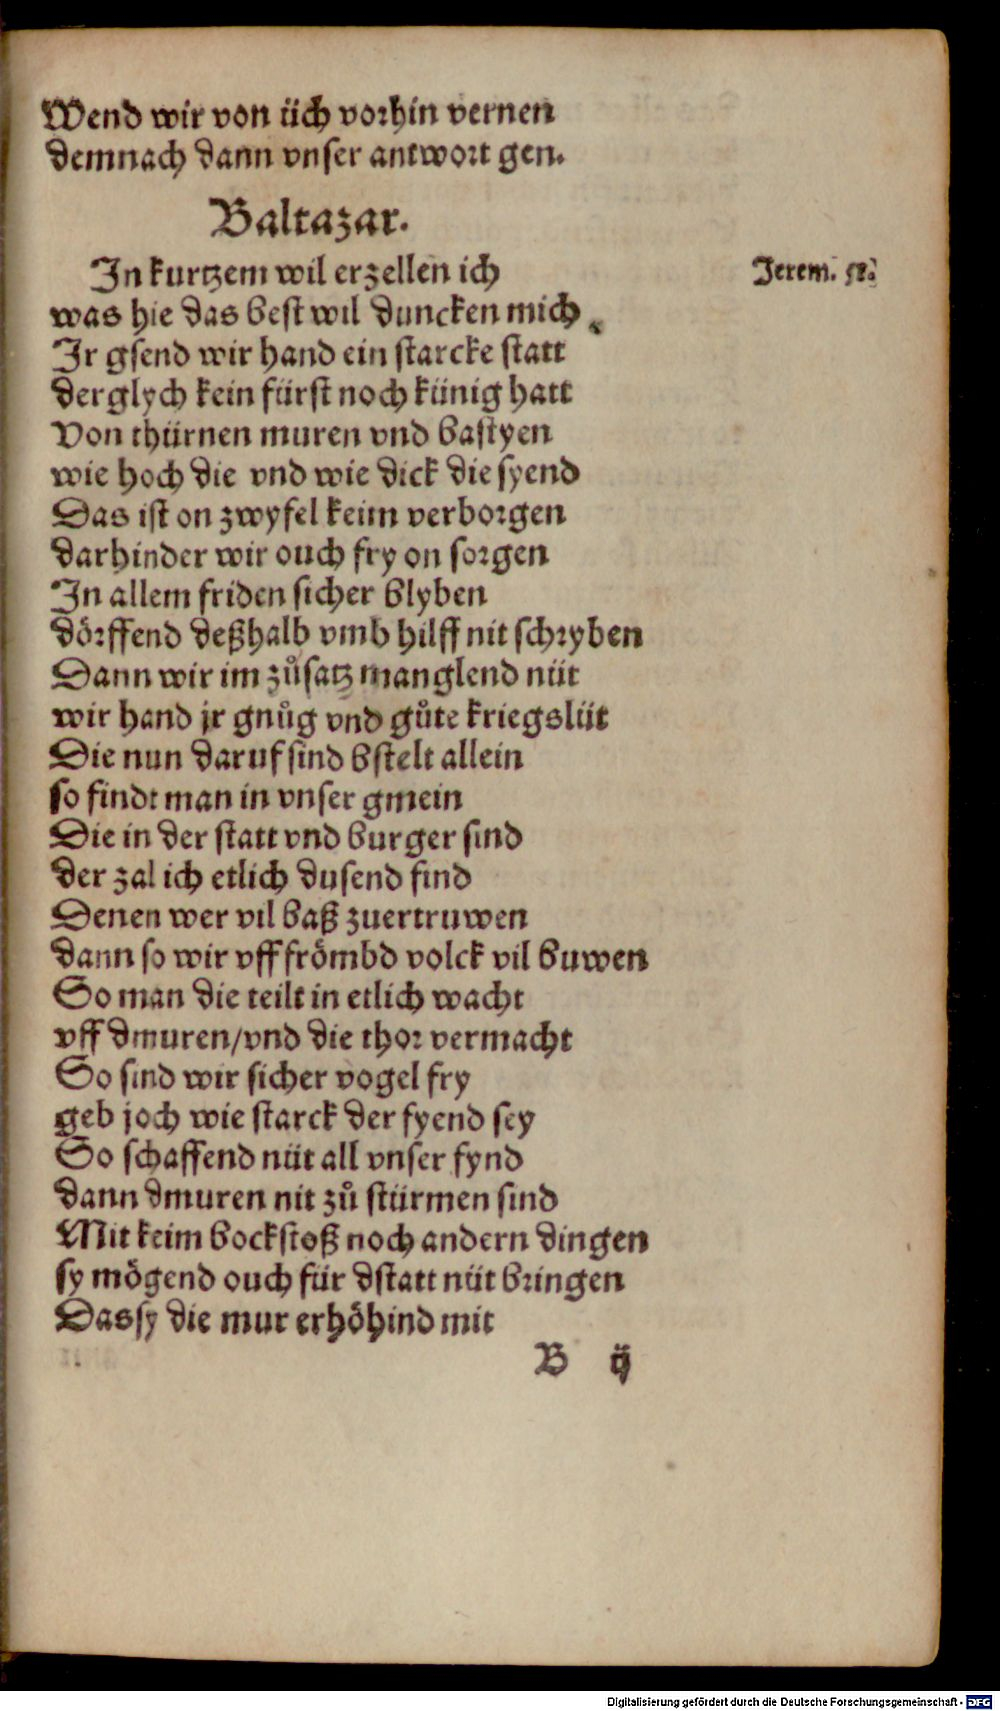 Wend wir von üch vorhin vernen
demnach dann vnser antwort gen.
Baltazar.
In kurtzem wil erzellen ich
Jerem. 51.
was hie das best wil duncken mich
Ir gsend wir hand ein starcke statt
derglych kein fürst noch künig hatt
Von thürnen muren vnd bastyen
wie hoch die vnd wie dick die syend
Das ist on zwyfel keim verborgen
darhinder wir ouch fry on sorgen
In allem friden sicher blyben
dörffend deßhalb vmb hilff nit schryben
Dann wir im zůsatz manglend nüt
wir hand jr gnůg vnd gůte kriegslüt
Die nun daruf sind bstelt allein
so findt man in vnser gmein
Die in der statt vnd burger sind
der zal ich etlich dusend find
Denen wer vil baß zuertruwen
dann so wir vff frömbd volck vil buwen
So man die teilt in etlich wacht
vff dmuren/vnd die thor vermacht
So sind wir sicher vogel fry
geb joch wie starck der fyend sey
So schaffend nüt all vnser fynd
dann dmuren nit zů stürmen sind
Mit keim bockstoß noch andern dingen
sy mögend ouch für dstatt nüt bringen
Das sy die mur erhöhind mit
B ij
Digitalisierung gefördert durch die Deutsche Forschungsgemeinschaft - DFG